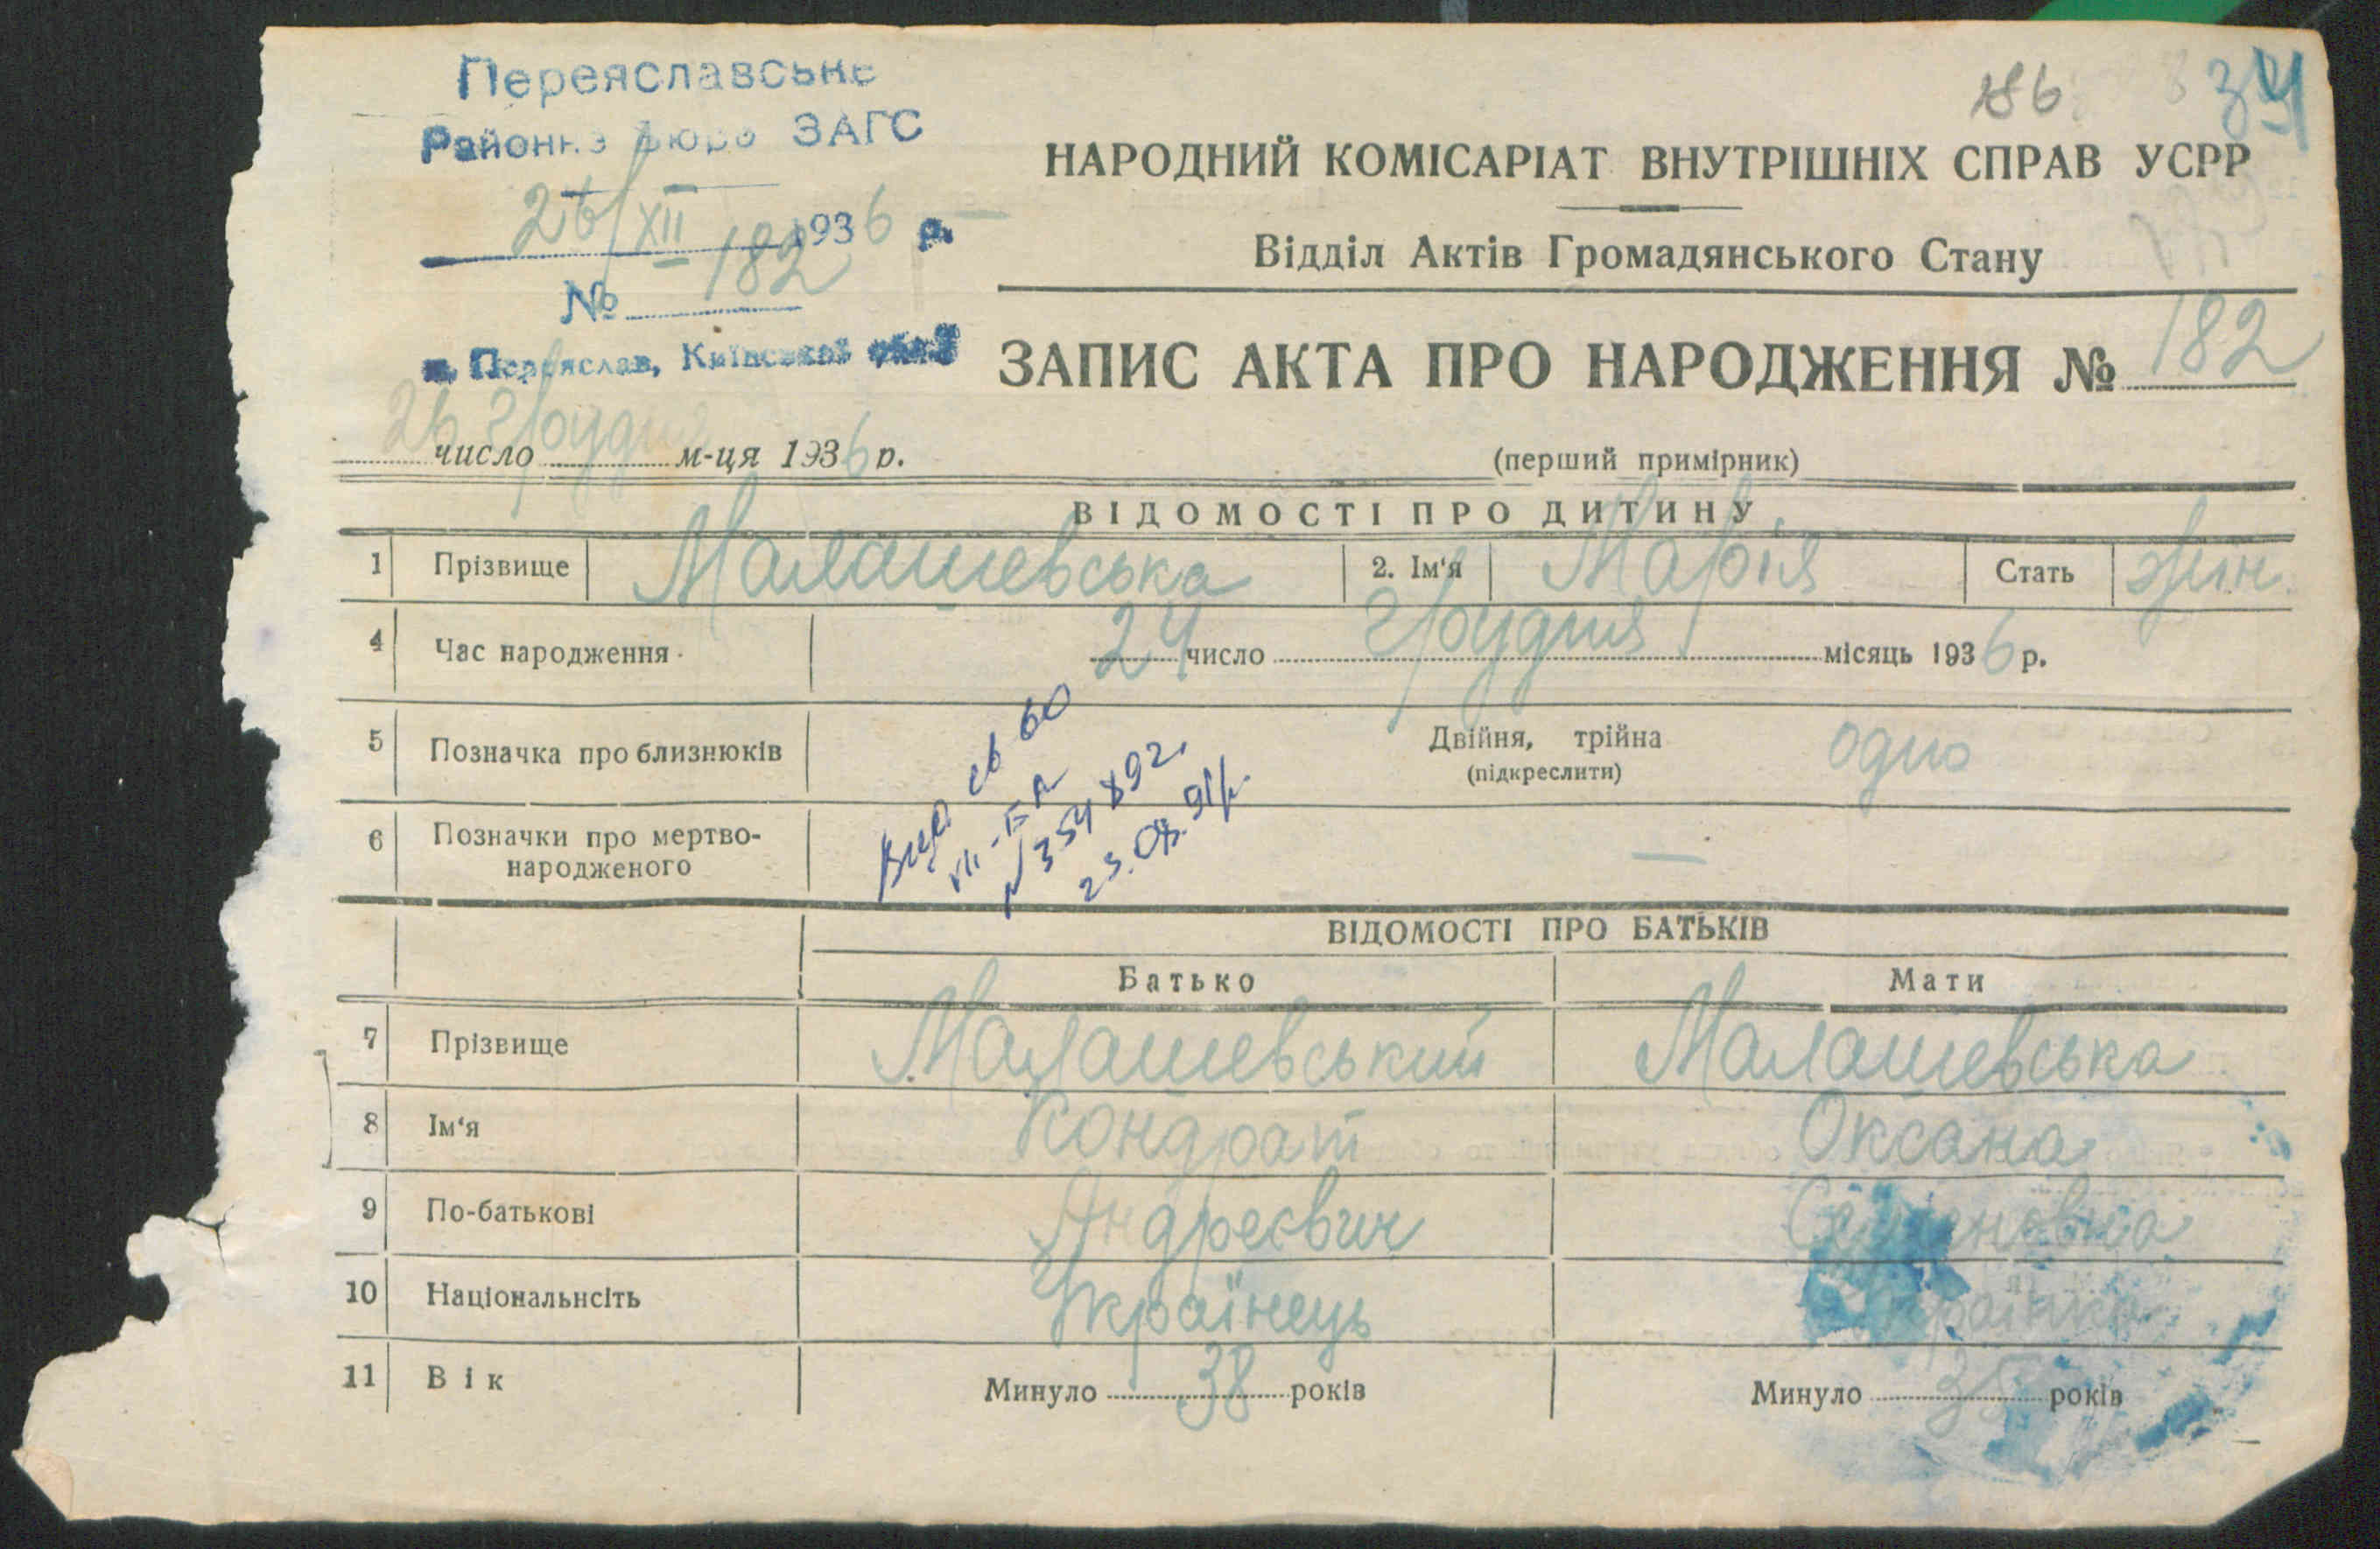 Переяславське
Районне бюро ЗАГС
26/XII 1936 р.
№ 182
м. Переяслав, Київської обл.
186
34
НАРОДНИЙ КОМІСАРІАТ ВНУТРІШНІХ СПРАВ УСРР
Відділ Актів Громадянського Стану
ЗАПИС АКТА ПРО НАРОДЖЕННЯ № 182
26 число грудня м-ця 1936 р.
(перший примірник)
ВІДОМОСТІ ПРО ДИТИНУ
1 Прізвище Малашевська 2. Ім'я Марія Стать жін
4 Час народження 24 число грудня місяць 1936 р.
5 Позначка про близнюків Двійня, трійна одно
(підкреслити)
6 Позначки про мертво-
народженого —
N 354892
23.08.91р.
ВІДОМОСТІ ПРО БАТЬКІВ
Батько Мати
7 Прізвище Малашевський Малашевська
8 Ім'я Кондрат Оксана
9 По-батькові Андреєвич Семеновна
10 Національнсіть Українець Українка
11 Вік Минуло 38 років Минуло 35 років